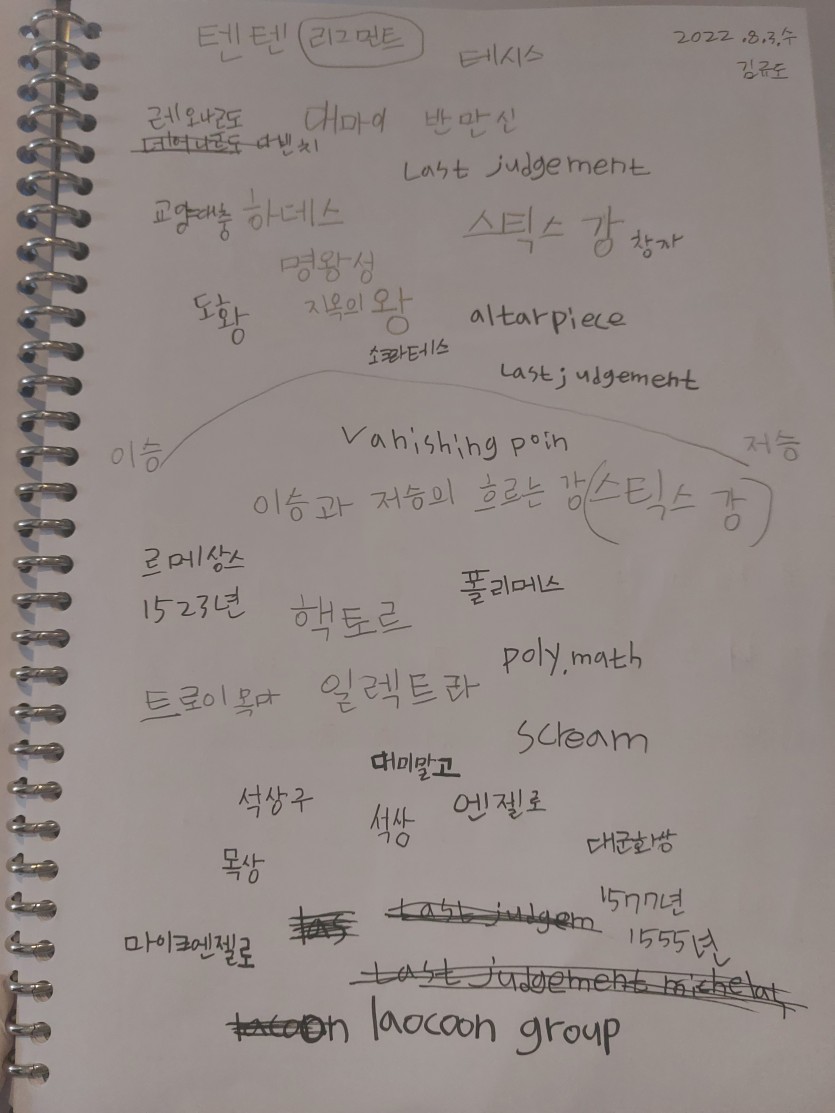 텐텐 리그먼트
테시스
2022.8.3.수
김규도
레오나르도
대마의 반만신
다빈치
Last judgement
교양대충 하데스
스틱스 강 창자
명왕성
도황
지옥의 왕
altarpiece
소크라테스
Last judgement
이승
Vanishing poin
저승
이승과 저승의 흐르는 강(스틱스 강)
르메상스
1523년
핵토르
폴리메스
poly.math
트로이목마
일렉트라
scream
대미말고
석상구
석상
엔젤로
목상
대군화방
1577년
1555년
마이크엔젤로
las
Last judgem
Last judgement michelat
lacoon laocoon group